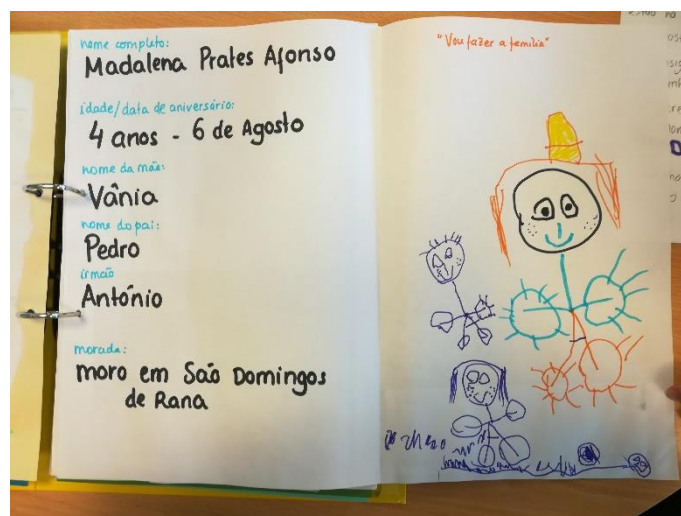 nome completo:
Madalena Prates Afonso
idade/data de aniversário:
4 anos - 6 de Agosto
nome da mãe:
Vânia
nome do pai:
Pedro
irmão
António
morada:
moro em São Domingos
de Rana
"Vou fazer a família"